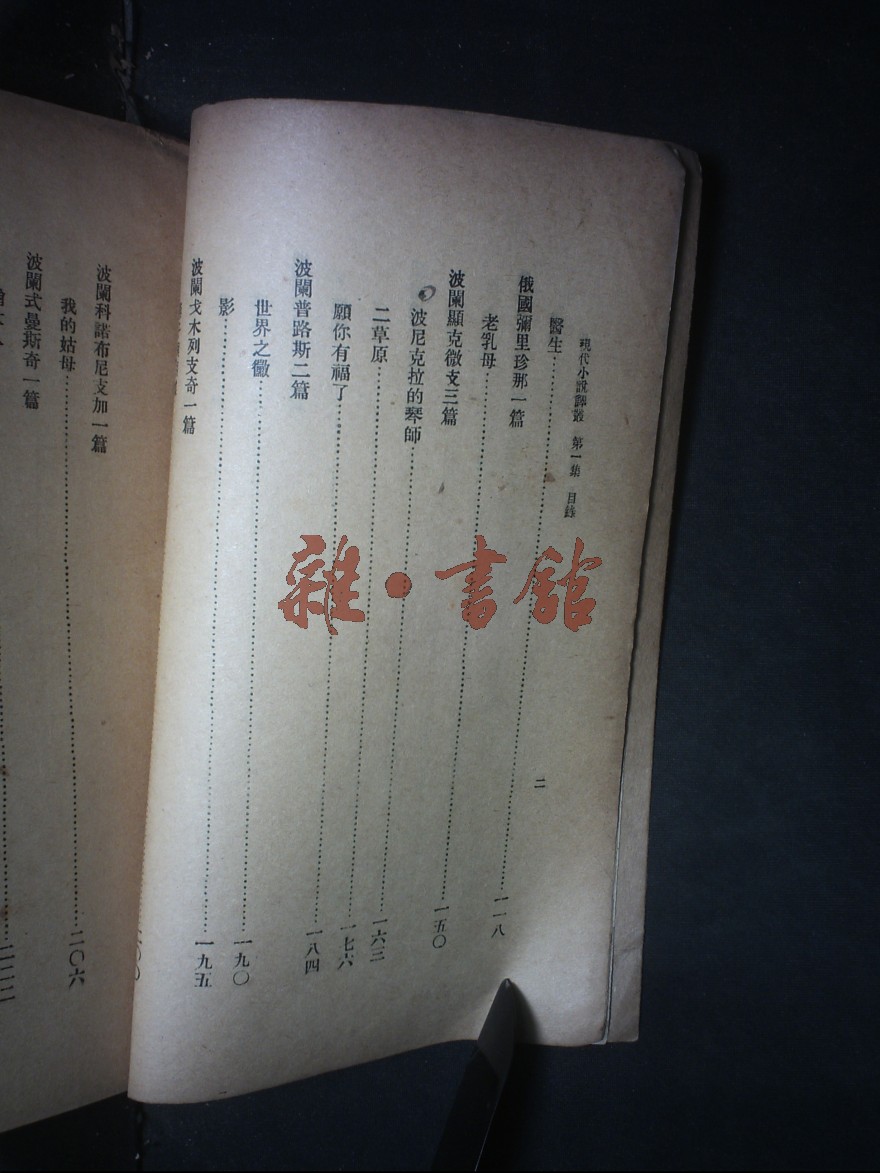 現代小說譯叢 第一集 目錄 二
醫生……………………一一八
俄國彌里珍那一篇
老乳母……………………一五〇
波闌顯克微支三篇
波尼克拉的琴師……………………一六三
二草原……………………一七六
願你有福了……………………一八四
波闌普路斯二篇
世界之黴……………………一九〇
影……………………一九五
波闌戈木列支奇一篇
波闌科諾布尼支加一篇
我的姑母……………………二〇六
波闌式曼斯奇一篇
雜・書館